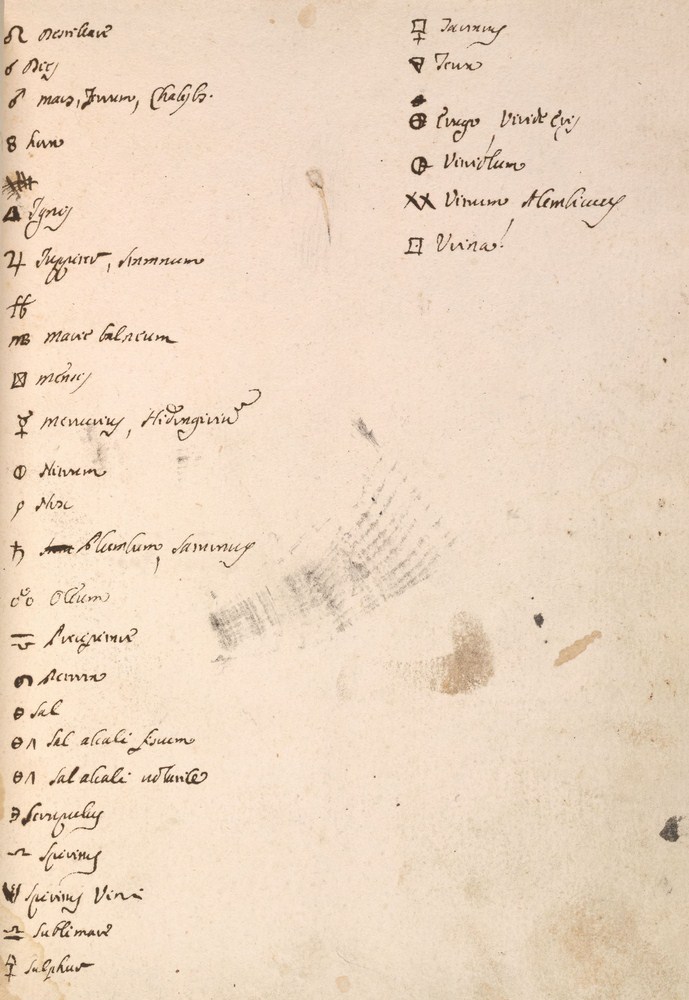 ♌ Destillare
Dies
♂ mars, ferrum, Chalybs.
8 hora
Ignis
♃ Juppiter, stannum
ƒƀ
MB maris balneum
mensis
☿ mercurius, Hidrargirium
Nitrum
Nox
♄ Plumbum, Saturnus
Oleum
Precipitare
Retorta
Sal
Sal alcali fixum
Sal alcali volatile
Scrupulus
Spiritus
Spiritus Vini
Sublimare
Sulphur
Tartarus
Terra
Erugo Viride Eris
Vitriolum
XX Vitrum Alembicus
Urina